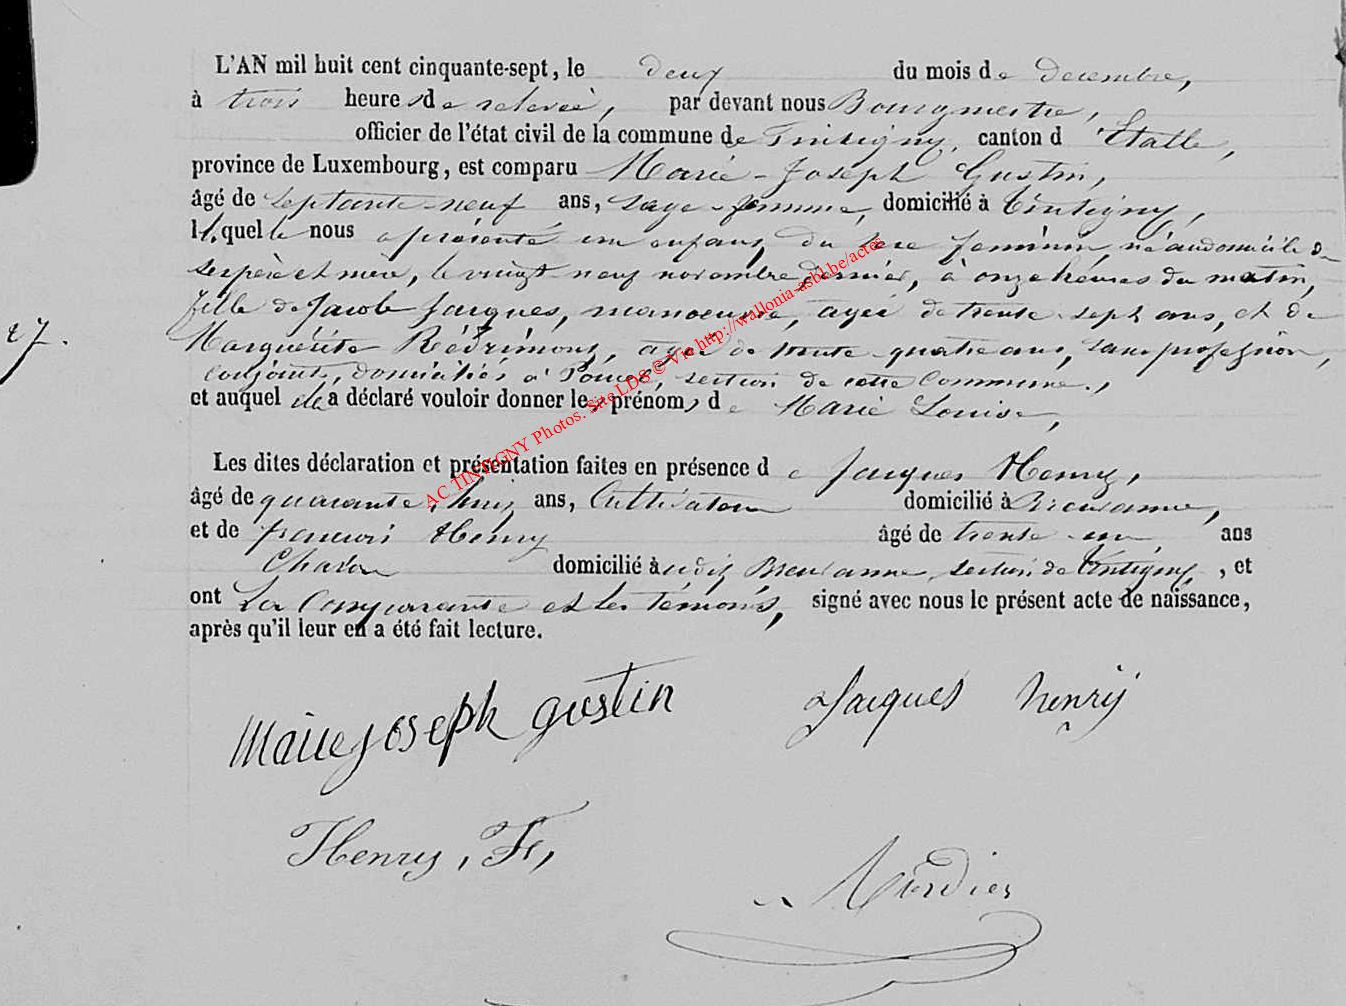 L'AN mil huit cent cinquante-sept, le deux du mois de decembre,
à trois heures de relevée, par devant nous Bourgmestre,
officier de l'état civil de la commune de Tintigny, canton d'Etalle,
province de Luxembourg, est comparu Marie-Joseph Gustin,
âgé de septante-neuf ans, sage-femme, domicilié à Tintigny,
laquelle nous a présenté un enfant, du sexe feminin, né au domicile de
ses père et mère, le vingt neuf novembre dernier, à onze heures du matin,
fille de Jacob Jacques, manoeuvre, agée de trente-sept ans, et de
27.
Marguerite agée de trente-quatre ans, sans profession,
conjoints, domiciliés à section de cette Commune.,
et auquel elle a déclaré vouloir donner les prénoms de Marie Louise,
Les dites déclaration et présentation faites en présence de Jacques Henry,
âgé de quarante-huit ans, Cultivateur domicilié à Breuvanne,
et de françois Henry âgé de trente-un ans
Charon domicilié audit Breuvanne, section de Tintigny, , et
ont La Comparante et les témoins, signé avec nous le présent acte de naissance,
après qu'il leur en a été fait lecture.
Marie joseph gustin
Jacques henry
Henry, Fs,
AC TINTIGNY Photos. Site LDS © Via http://wallonia-asbl.be/actes